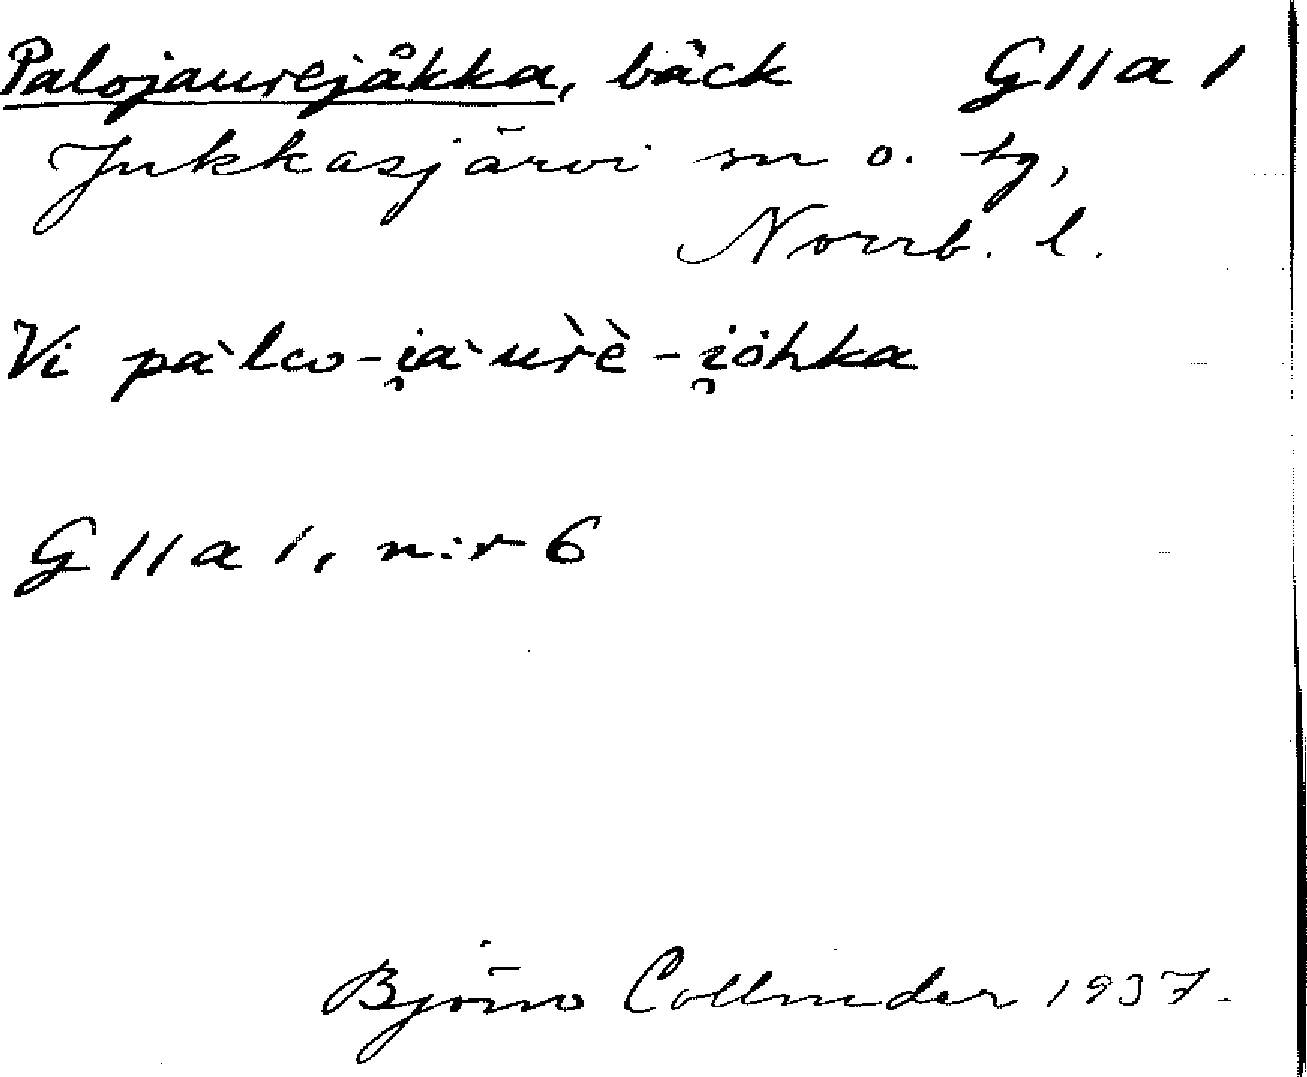 Palojaurejåkka, bäck G11a1
Jukkasjärvi sn o. tg,
Norrb. l.
Vi pàlco-i̯àùrè-i̯ȯhka
G11a1, n:r 6
Björn Collinder 1937.